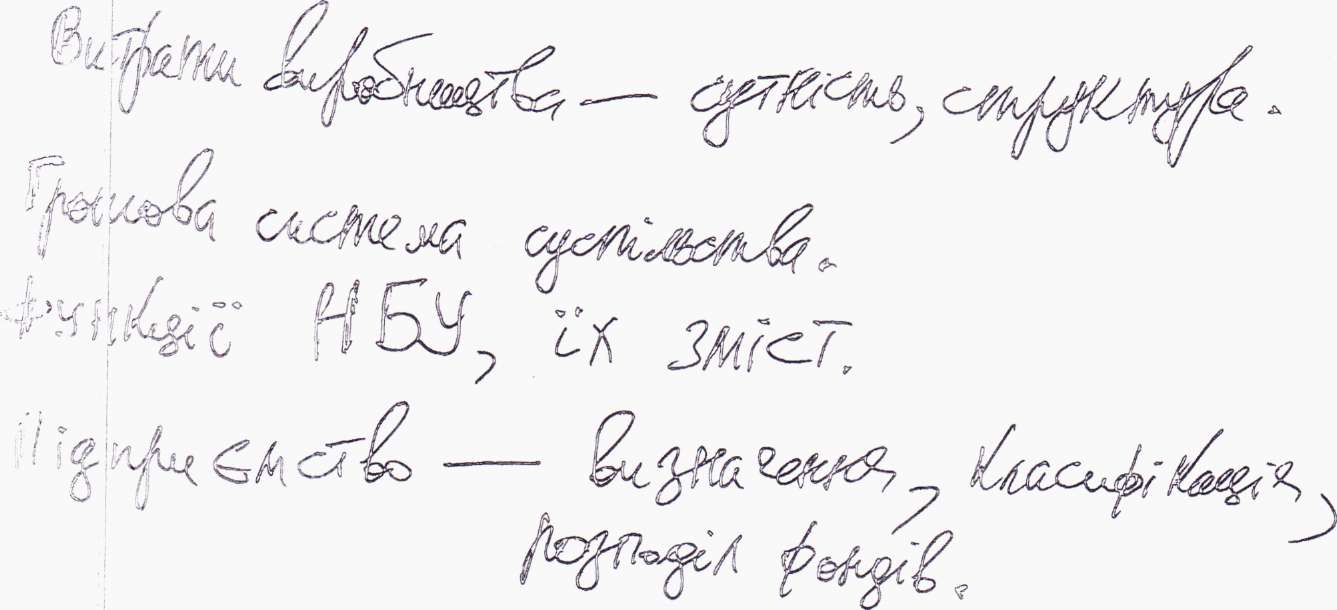 Витрати виробництва — сутність, структура.
Грошова система суспільства.
Функції НБУ, їх зміст.
Підприємство — визначення, класифікація,
розподіл фондів.